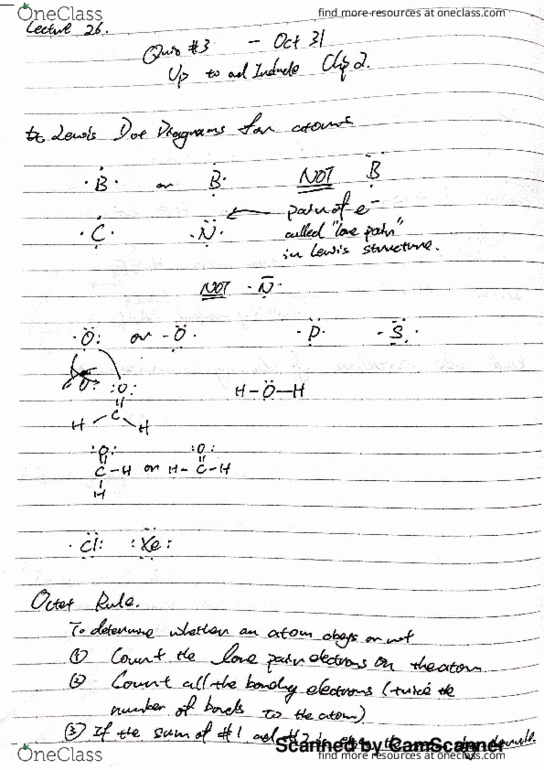 OneClass
find more resources at oneclass.com
Lecture 26.
Quiz #3 - Oct 31
Up to and Include Chp 2.
Lewis Dot Diagrams for atoms
·B· or B· NOT B
·C· ·N· pair of e⁻
called "lone pair"
in Lewis structure.
NOT ·N·
·O: or ·O· ·P· ·S·
:O: H-O-H
H C H
:O: :O:
C-H or H-C-H
H
·Cl: :Xe:
Octet Rule.
To determine whether an atom obeys or not
① Count the lone pair electrons on the atom.
② Count all the bonding electrons (twice the
number of bonds to the atom)
③ If the sum of #1 and #2 is
Scanned by CamScanner
OneClass
find more resources at oneclass.com